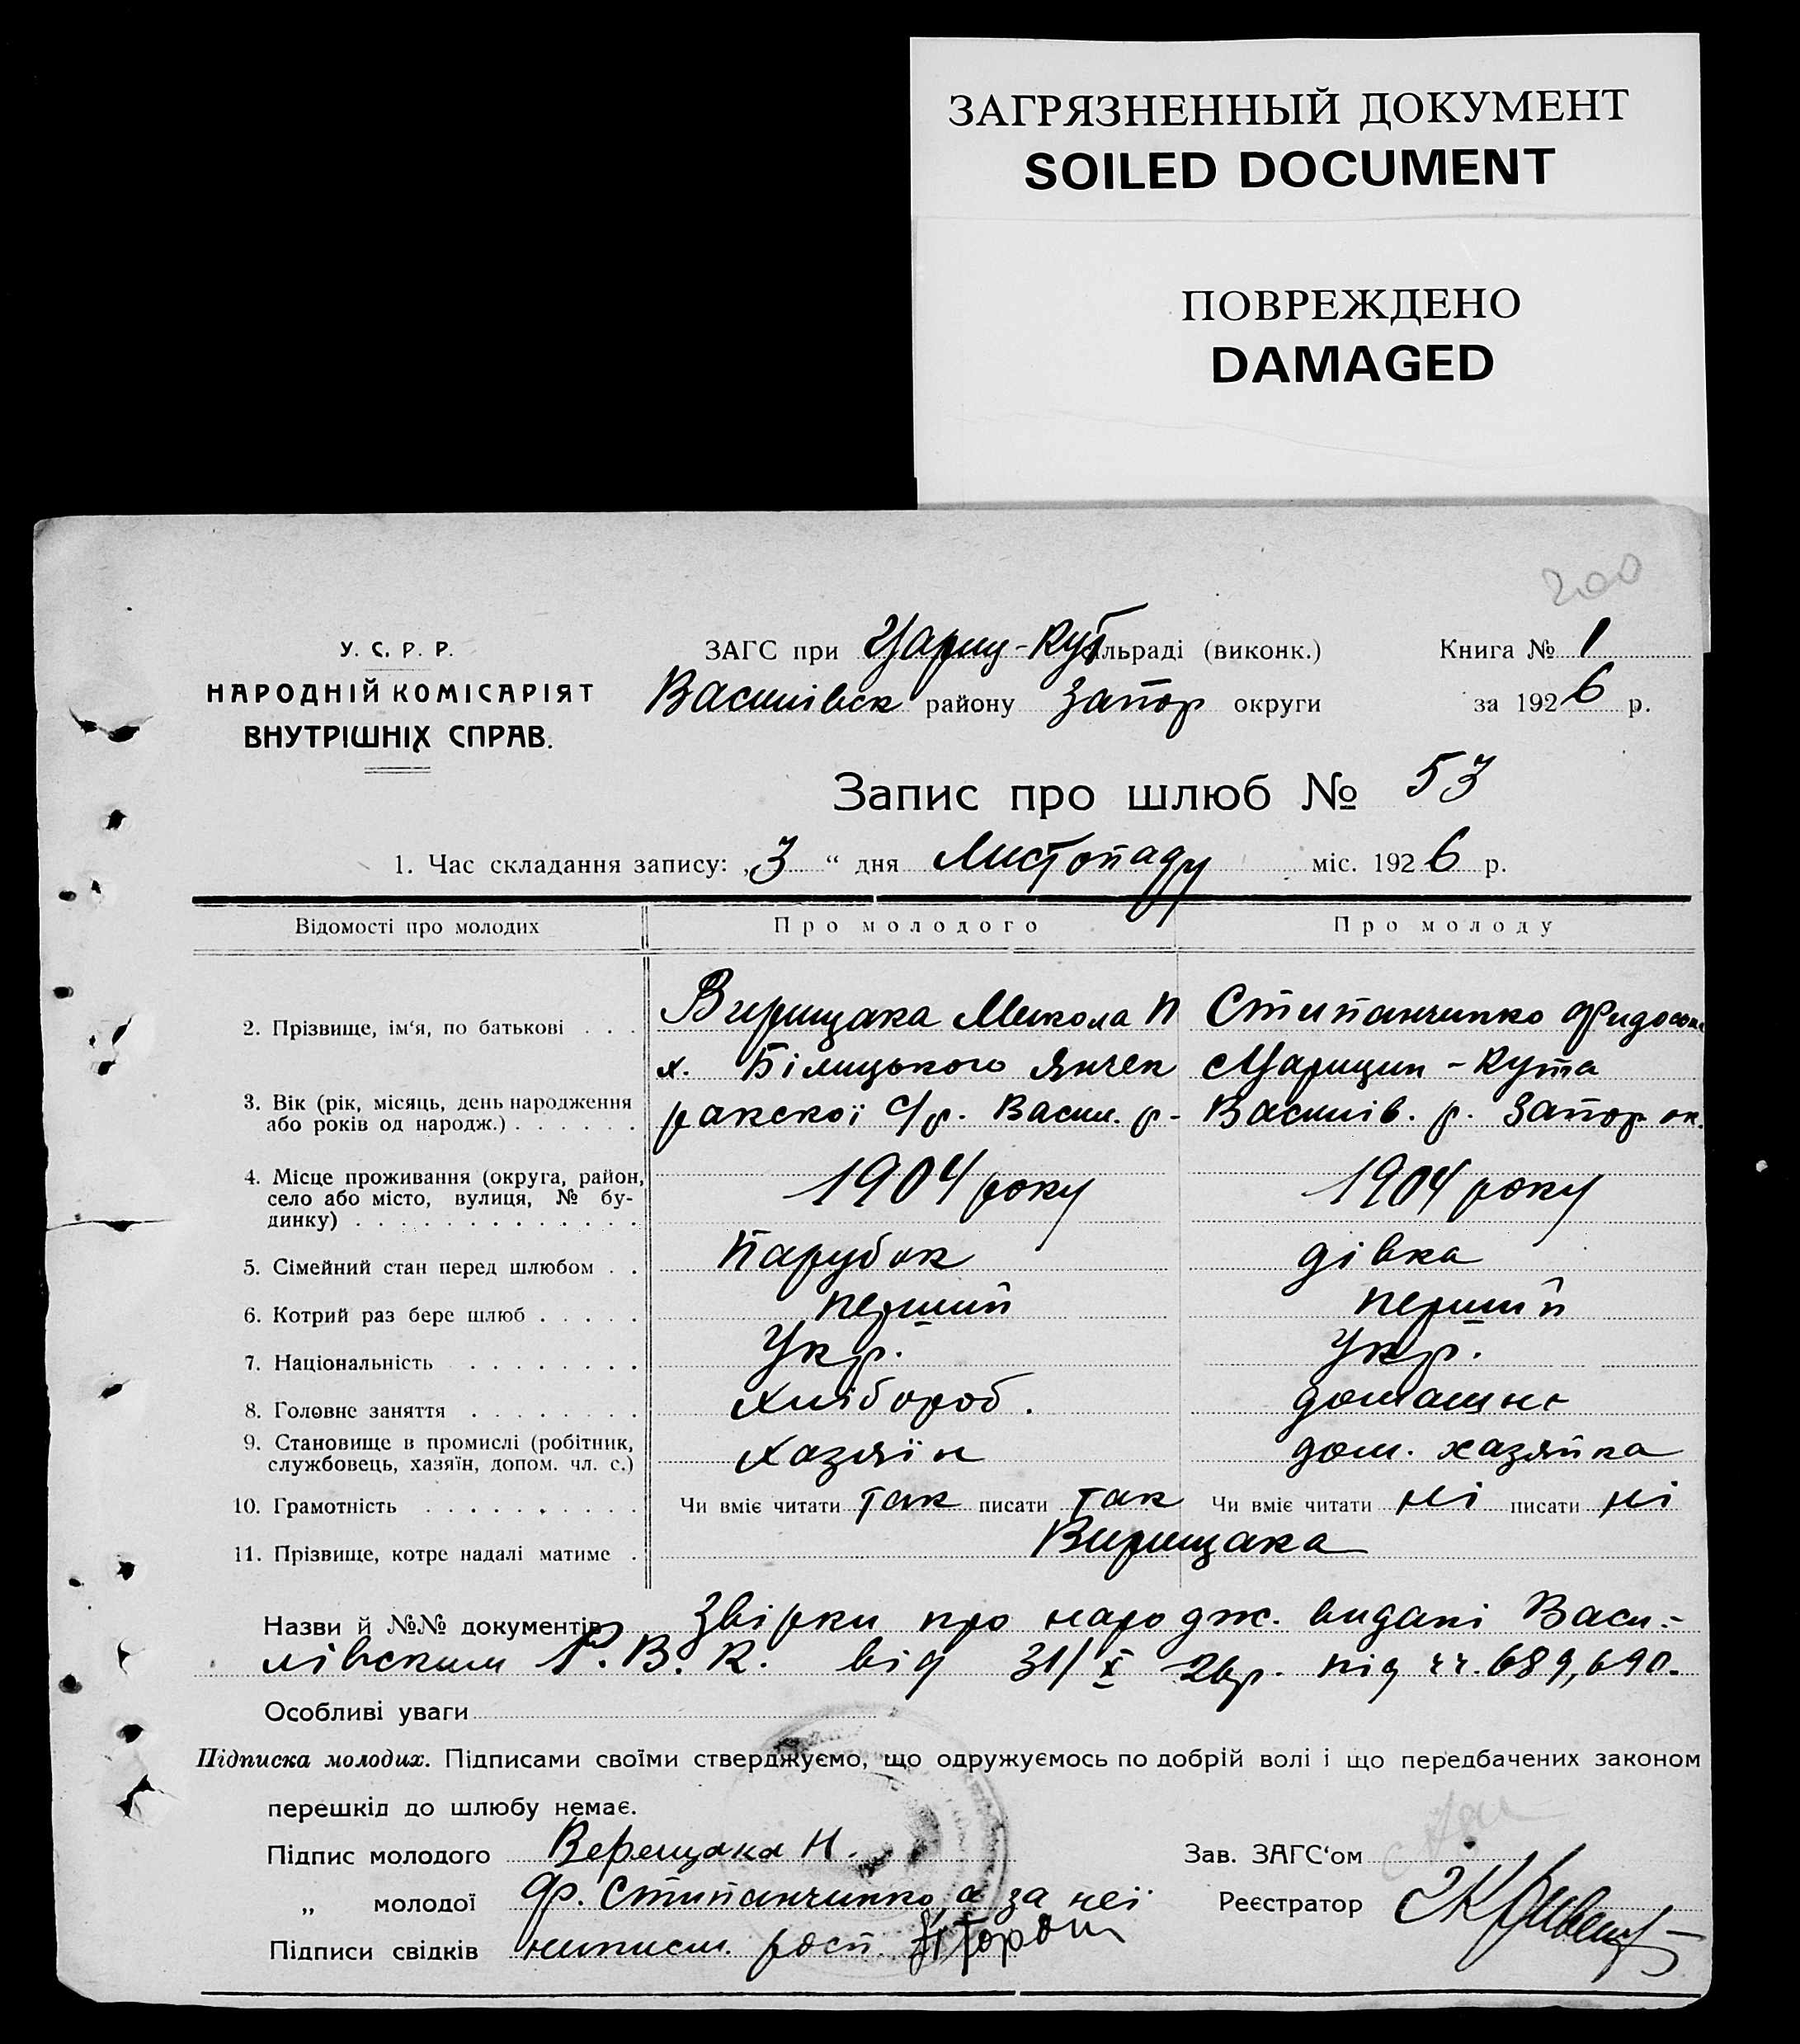 ЗАГРЯЗНЕННЫЙ ДОКУМЕНТ
SOILED DOCUMENT
ПОВРЕЖДЕНО
DAMAGED
200
У. С. Р. Р.
НАРОДНІЙ КОМІСАРІЯТ
ВНУТРІШНІХ СПРАВ.
ЗАГС при Цариц-Кут льраді (виконк.)
Василівск району Запор округи
Книга № 1
за 1926 р.
Запис про шлюб № 53
1. Час складання запису: „3“ дня Листопаду міс. 1926 р.
Відомості про молодих Про молодого Про молоду
2. Прізвище, ім‘я, по батькові . . . Вирищака Микола П Стипанчинко Фидос
х. Білицького Янчек Царицин-Кута
3. Вік (рік, місяць, день народження
або років од народж.) . . . . . . ракскої С/р. Васил. р- Василів. р. Запор ок.
4. Місце проживання (округа, район,
село або місто, вулиця, № бу-
динку) . . . . . . . . . . . . . 1904 року 1904 року
5. Сімейний стан перед шлюбом . . Парубок дівка
6. Котрий раз бере шлюб . . . . . перший перший
7. Національність . . . . . . . . Укр. Укр.
8. Головне заняття . . . . . . . . Хлібороб. домашнє
9. Становище в промислі (робітник,
службовець, хазяїн, допом. чл. с.) Хазяїн дом. хазяйка
10. Грамотність . . . . . . . . . . Чи вміє читати так писати так Чи вміє читати ні писати ні
11. Прізвище, котре надалі матиме . Вирищака
Назви й №№ документів Звірки про народж. видані Васи-
лівским Р.В.К. від 31/X 26р. під чч. 689, 690.
Особливі уваги
Підписка молодих. Підписами своїми стверджуємо, що одружуємось по добрій волі і що передбачених законом
перешкід до шлюбу немає.
Підпис молодого Верещака Н.
„ молодої Ф. Стипанчинко, а за неї
Підписи свідків неписм. росп.
Зав. ЗАГС‘ом
Реєстратор